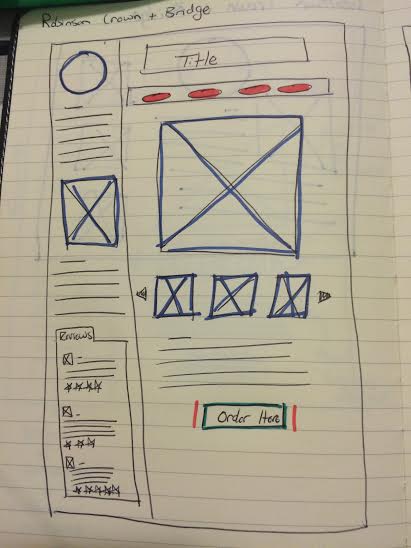 Robinson Crown + Bridge
Title
Reviews
Order Here